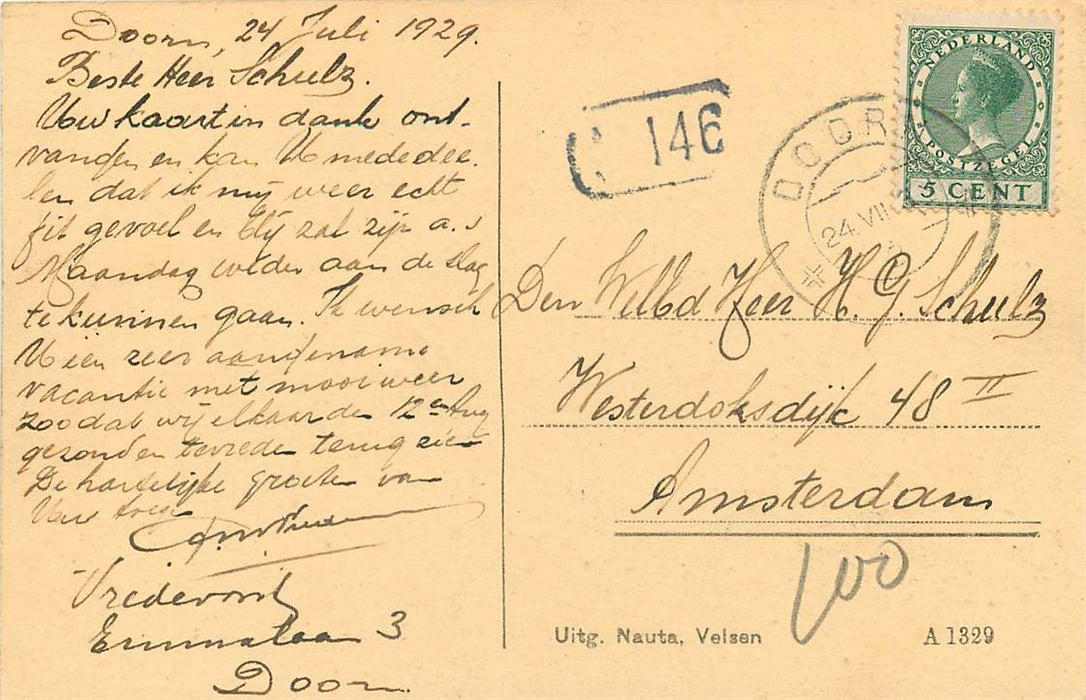 Doorn, 24 Juli 1929.
Beste Heer Schulz.
Uw kaart in dank ont-
vangen en kan U mededee-
len dat ik mij weer echt
fit gevoel en blij zal zijn a.s
Maandag weder aan de slag
te kunnen gaan. Ik wensch
U een zeer aangename
vacantie met mooi weer
zoodat wij elkaar den 12en Aug
gezond en tevreden terug zien
De hartelijke groeten van
Uw
Vredevoort
Emmalaan 3
Doorn.
146
DOORN
24.VII
NEDERLAND
POSTZEGEL
5 CENT
Den WelEd Heer H. G. Schulz
Westerdoksdijk 48 II
Amsterdam
100
Uitg. Nauta, Velsen
A 1329